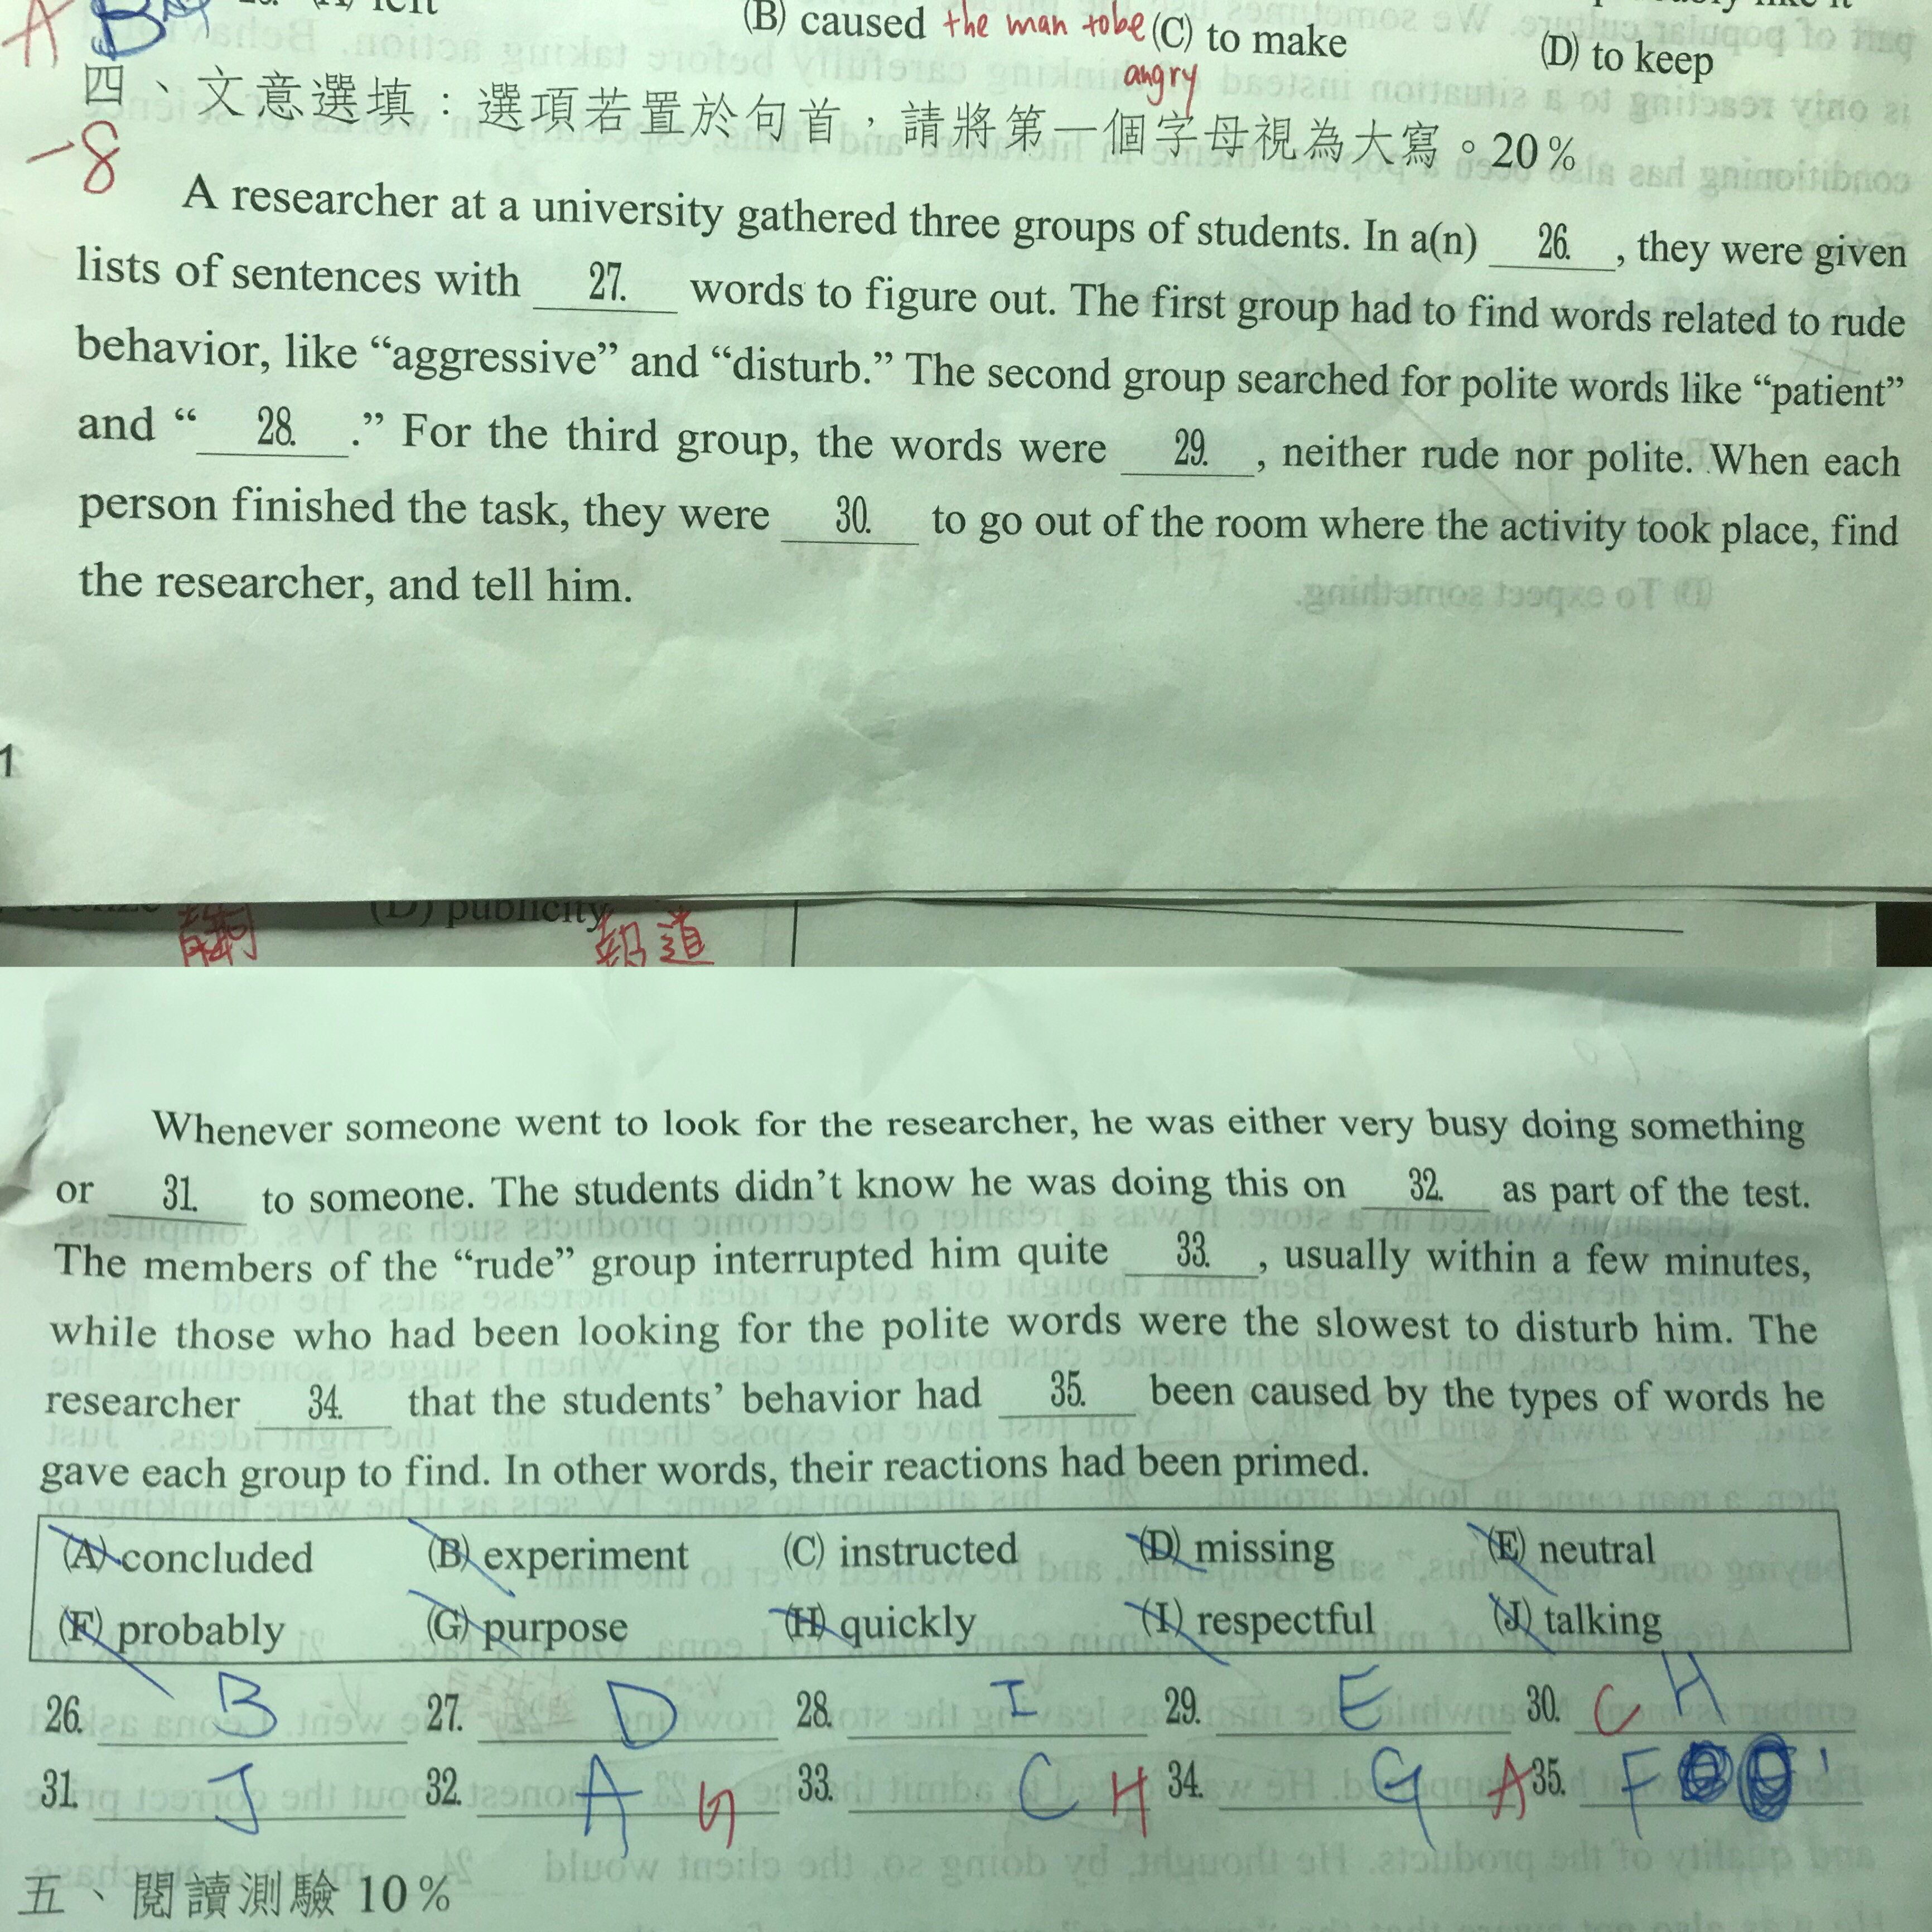 (B) caused the man to be (C) to make (D) to keep
angry
A B
四、文意選填：選項若置於句首，請將第一個字母視為大寫。20%
-8
A researcher at a university gathered three groups of students. In a(n) 26. , they were given
lists of sentences with 27. words to figure out. The first group had to find words related to rude
behavior, like “aggressive” and “disturb.” The second group searched for polite words like “patient”
and “ 28. .” For the third group, the words were 29. , neither rude nor polite. When each
person finished the task, they were 30. to go out of the room where the activity took place, find
the researcher, and tell him.
1
(D) publicity
報導
Whenever someone went to look for the researcher, he was either very busy doing something
or 31. to someone. The students didn’t know he was doing this on 32. as part of the test.
The members of the “rude” group interrupted him quite 33. , usually within a few minutes,
while those who had been looking for the polite words were the slowest to disturb him. The
researcher 34. that the students’ behavior had 35. been caused by the types of words he
gave each group to find. In other words, their reactions had been primed.
(A) concluded (B) experiment (C) instructed (D) missing (E) neutral
(F) probably (G) purpose (H) quickly (I) respectful (J) talking
26. B 27. D 28. I 29. E 30. C H
31. J 32. A G 33. C H 34. G A 35. F
五、閱讀測驗 10%